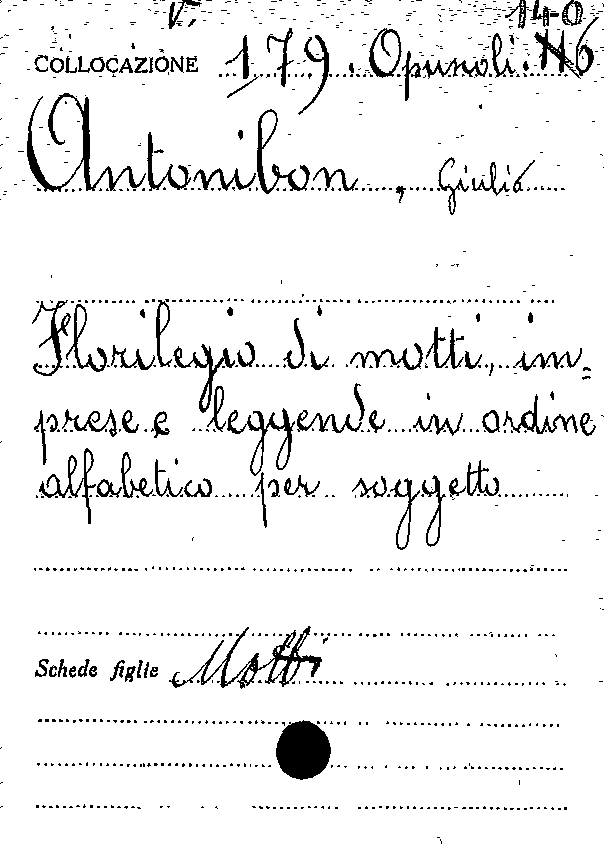 V. 140
COLLOCAZIONE 179. Opuscoli. 116
Antonibon, Giulia
Florilegio di motti, im=
prese e leggende in ordine
alfabetico per soggetto
Schede figlie Motti